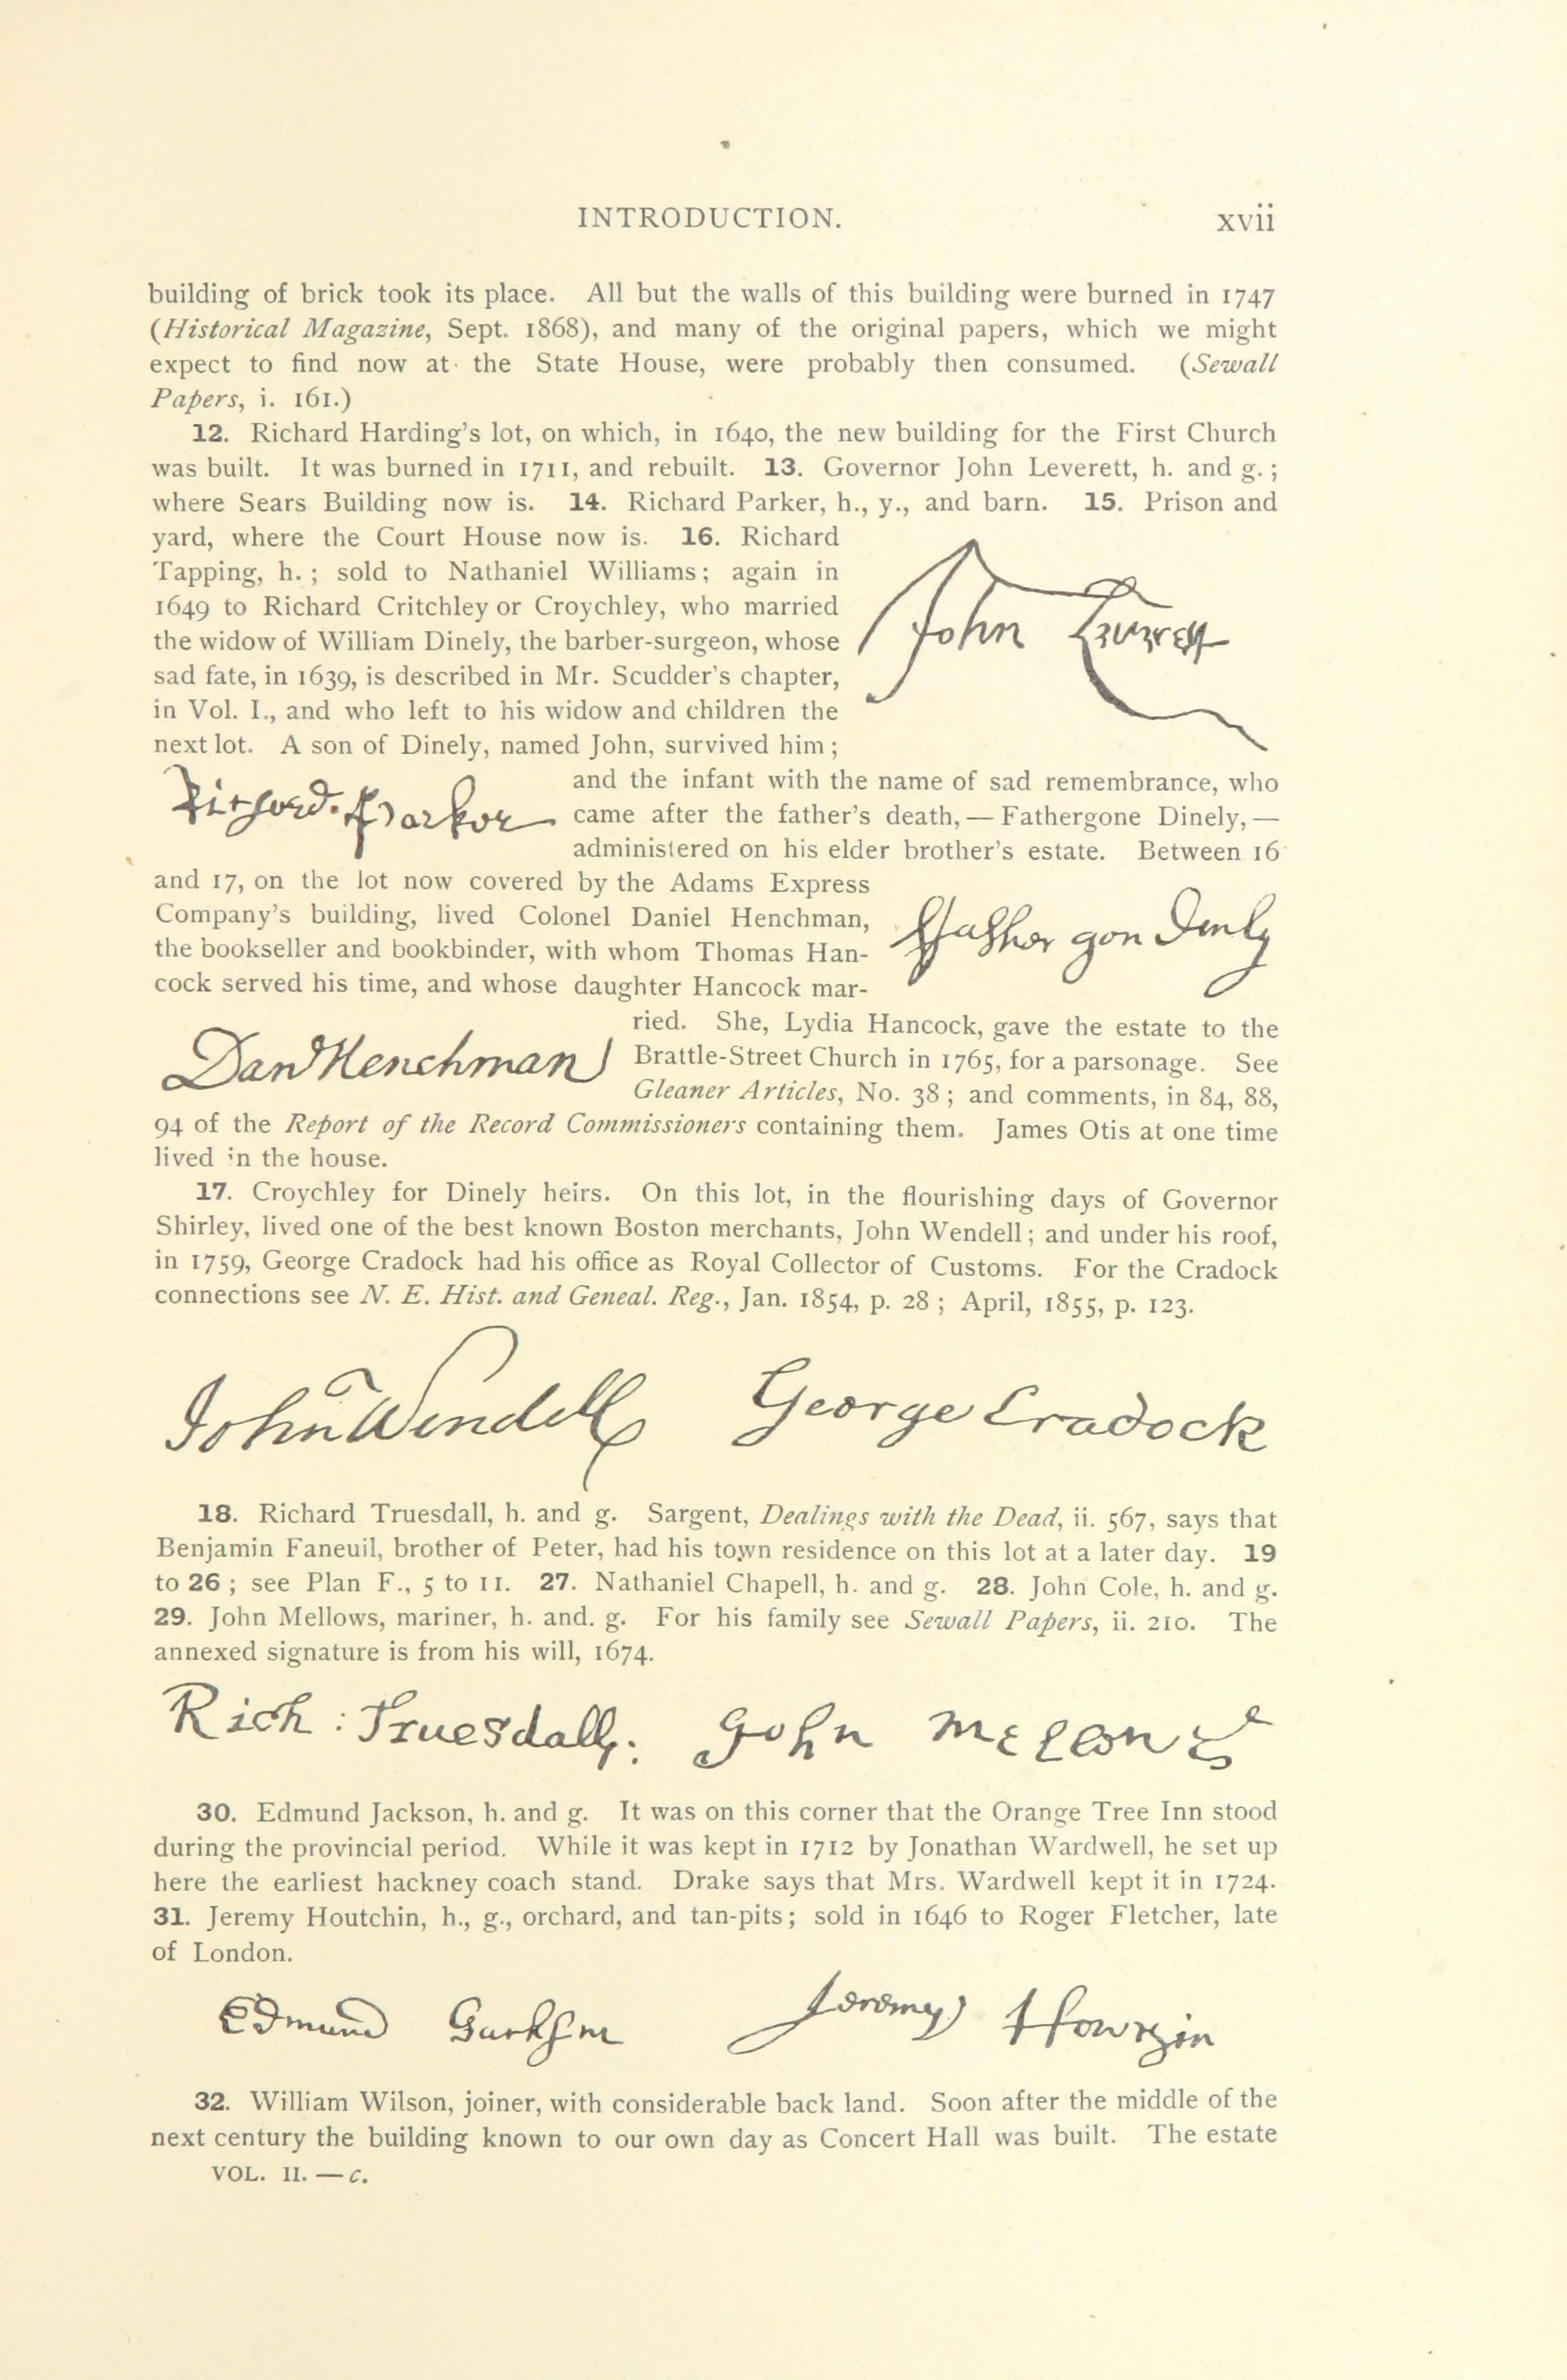 INTRODUCTION. xvii
building of brick took its place. All but the walls of this building were burned in 1747
(Historical Magazine, Sept. 1868), and many of the original papers, which we might
expect to find now at the State House, were probably then consumed. (Sewall
Papers, i. 161.)
12. Richard Harding's lot, on which, in 1640, the new building for the First Church
was built. It was burned in 1711, and rebuilt. 13. Governor John Leverett, h. and g. ;
where Sears Building now is. 14. Richard Parker, h., y., and barn. 15. Prison and
yard, where the Court House now is. 16. Richard
Tapping, h. ; sold to Nathaniel Williams; again in
1649 to Richard Critchley or Croychley, who married
the widow of William Dinely, the barber-surgeon, whose
John Leverett
sad fate, in 1639, is described in Mr. Scudder's chapter,
in Vol. I., and who left to his widow and children the
next lot. A son of Dinely, named John, survived him ;
and the infant with the name of sad remembrance, who
Richard Parker
came after the father's death, — Fathergone Dinely, —
administered on his elder brother's estate. Between 16
and 17, on the lot now covered by the Adams Express
Company's building, lived Colonel Daniel Henchman,
ffather gon Dinly
the bookseller and bookbinder, with whom Thomas Han-
cock served his time, and whose daughter Hancock mar-
ried. She, Lydia Hancock, gave the estate to the
Danl Henchman
Brattle-Street Church in 1765, for a parsonage. See
Gleaner Articles, No. 38 ; and comments, in 84, 88,
94 of the Report of the Record Commissioners containing them. James Otis at one time
lived in the house.
17. Croychley for Dinely heirs. On this lot, in the flourishing days of Governor
Shirley, lived one of the best known Boston merchants, John Wendell ; and under his roof,
in 1759, George Cradock had his office as Royal Collector of Customs. For the Cradock
connections see N. E. Hist. and Geneal. Reg., Jan. 1854, p. 28 ; April, 1855, p. 123.
John Wendell George Cradock
18. Richard Truesdall, h. and g. Sargent, Dealings with the Dead, ii. 567, says that
Benjamin Faneuil, brother of Peter, had his town residence on this lot at a later day. 19
to 26 ; see Plan F., 5 to 11. 27. Nathaniel Chapell, h. and g. 28. John Cole, h. and g.
29. John Mellows, mariner, h. and. g. For his family see Sewall Papers, ii. 210. The
annexed signature is from his will, 1674.
Rich : Truesdall: John
30. Edmund Jackson, h. and g. It was on this corner that the Orange Tree Inn stood
during the provincial period. While it was kept in 1712 by Jonathan Wardwell, he set up
here the earliest hackney coach stand. Drake says that Mrs. Wardwell kept it in 1724.
31. Jeremy Houtchin, h., g., orchard, and tan-pits ; sold in 1646 to Roger Fletcher, late
of London.
Edmund Jackson Jeremy
32. William Wilson, joiner, with considerable back land. Soon after the middle of the
next century the building known to our own day as Concert Hall was built. The estate
VOL. II. — c.